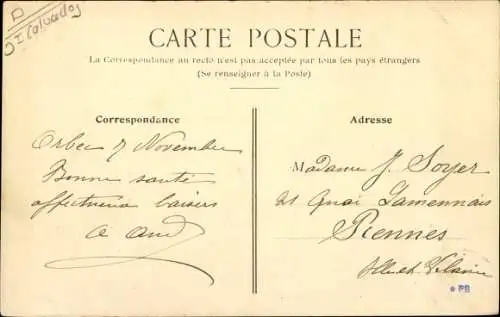 D
I Calvados
CARTE POSTALE
La Correspondance au recto n'est pas acceptée par tous les pays étrangers
(Se renseigner à la Poste)
Correspondance
Orbec 7 Novembre
Bonne santé
affectueux baisers
Adresse
Madame J. Soyer
21 Quai Lamennais
Rennes
Ille et Vilaine
PB